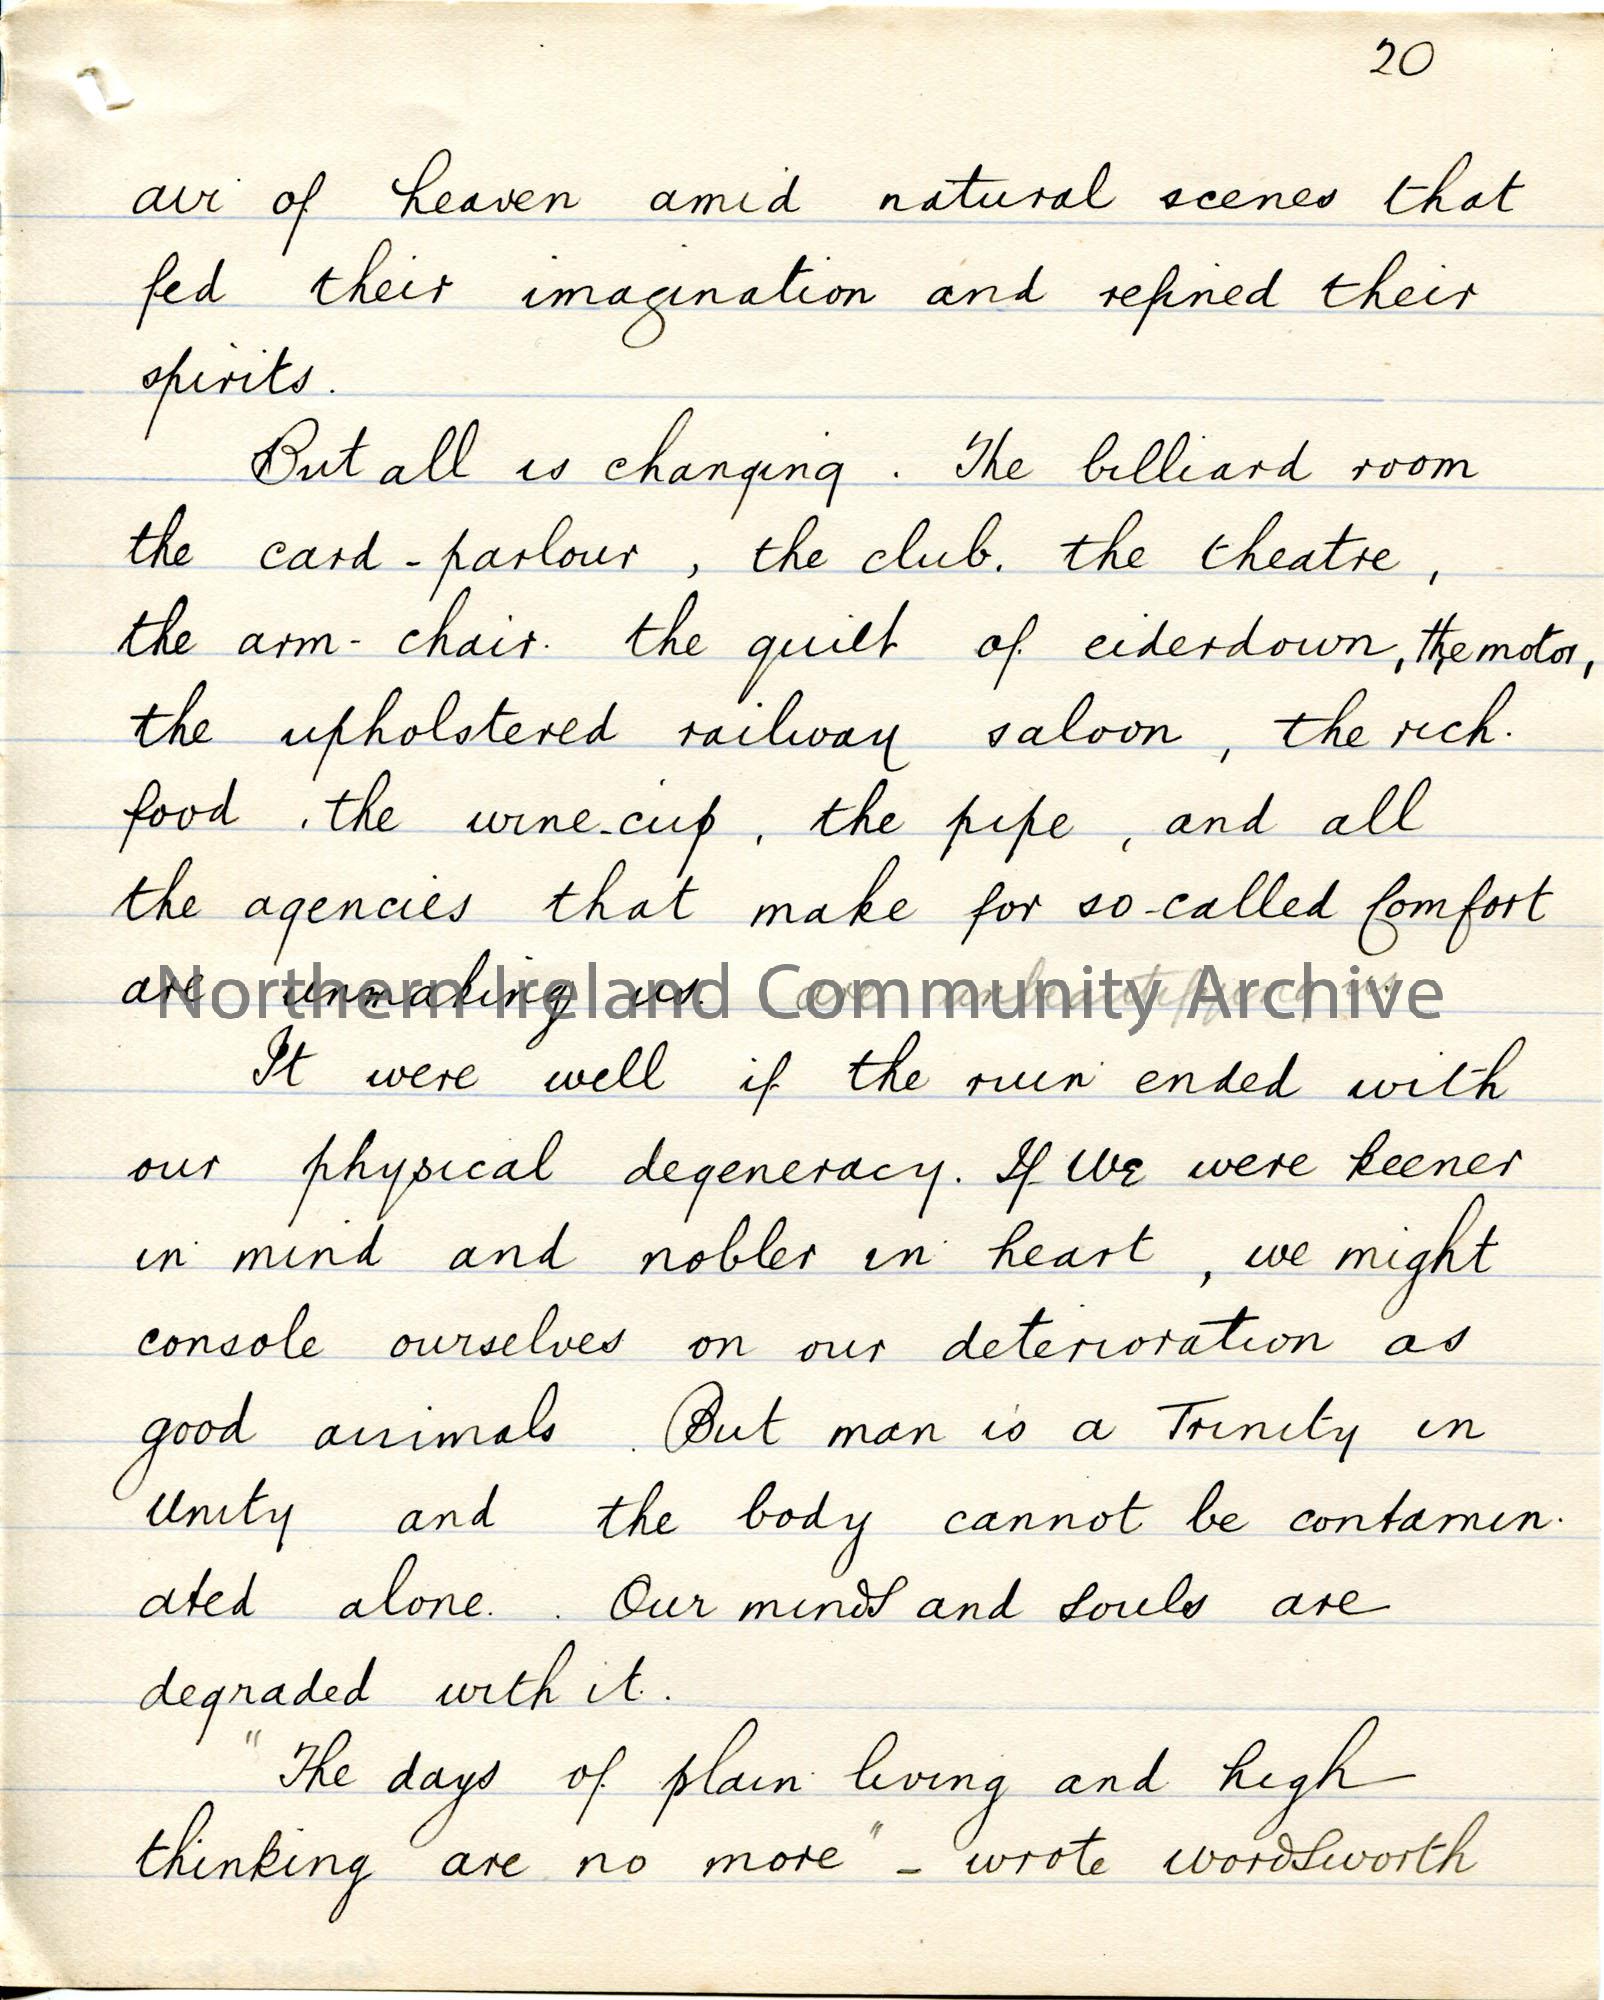 20
air of heaven amid natural scenes that
fed their imagination and refined their
spirits.
But all is changing. The billiard room
the card-parlour, the club. the theatre,
the arm-chair. the quilt of eiderdown, the motor,
the upholstered railway saloon, the rich.
food, the wine-cup, the pipe, and all
the agencies that make for so-called Comfort
are unmaking us. are unbeautifying us.
Northern Ireland Community Archive
It were well if the ruin ended with
our physical degeneracy. If We were keener
in mind and nobler in heart, we might
console ourselves on our deterioration as
good animals. But man is a Trinity in
Unity and the body cannot be contamin-
ated alone. Our minds and souls are
degraded with it.
"The days of plain living and high
thinking are no more" - wrote wordsworth